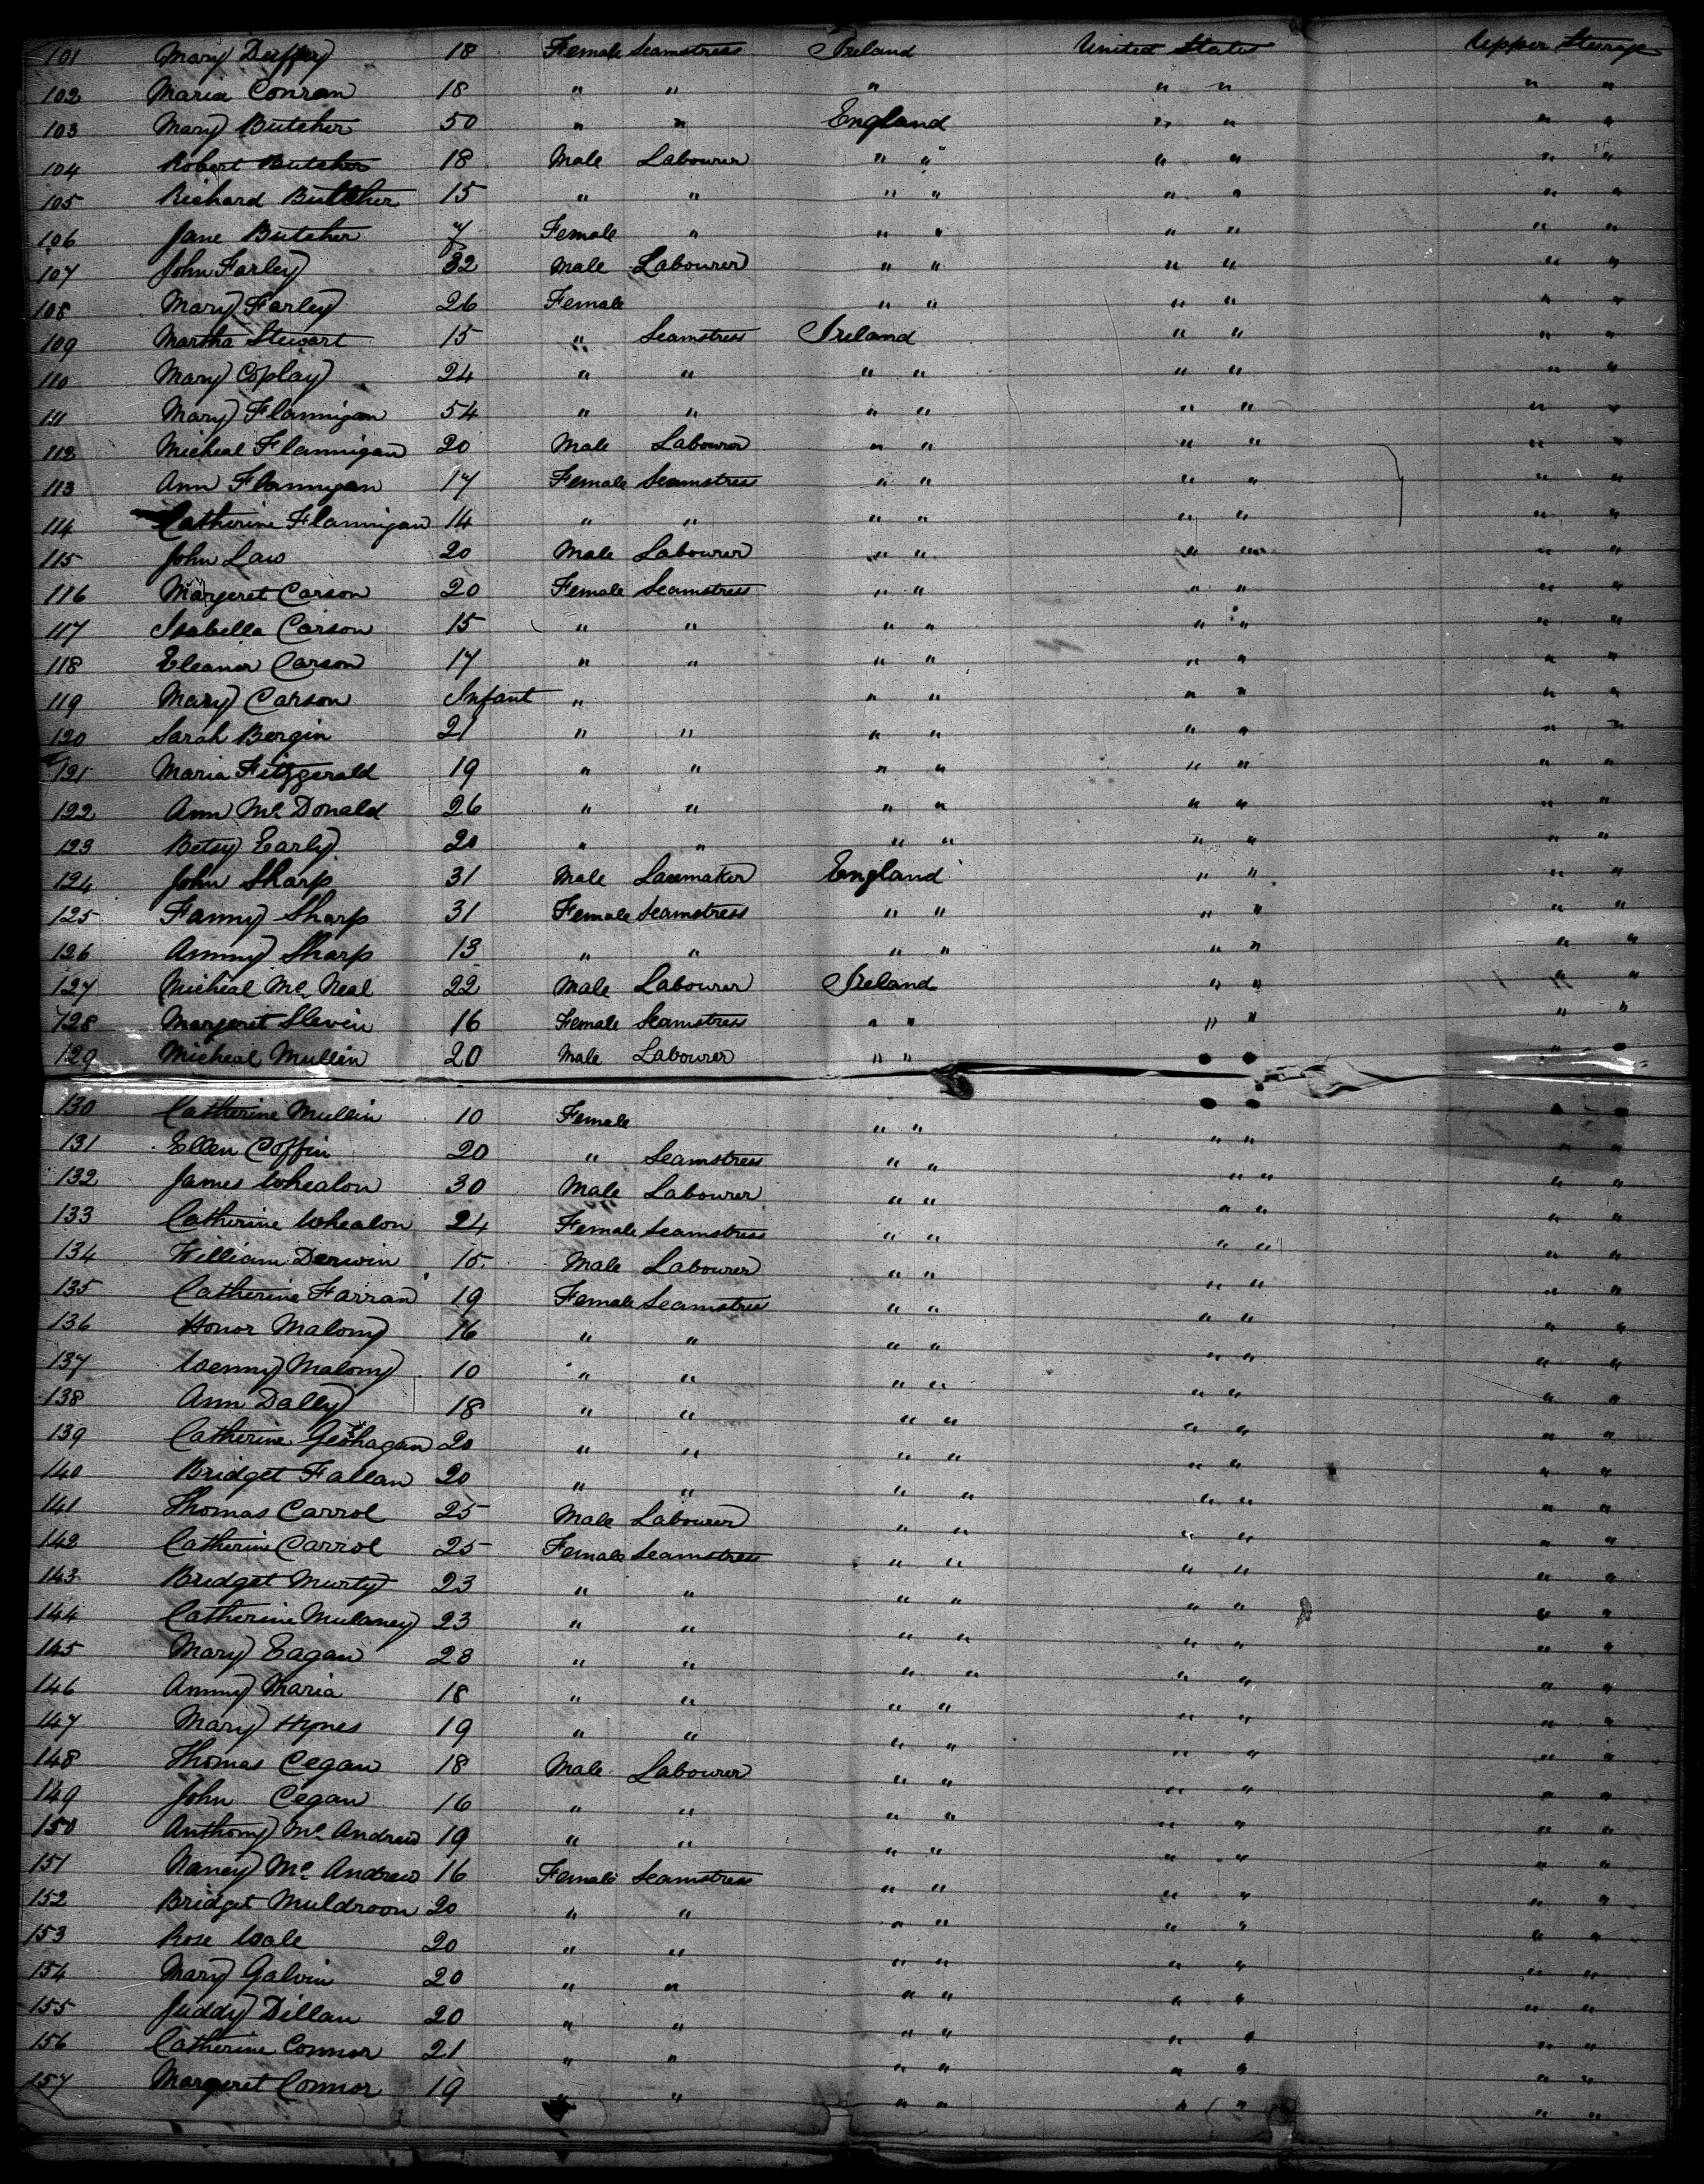 101 Mary Deffery 18 Female Seamstress Ireland United States Upper Steerage
102 Maria Conran 18 " " " " " " "
103 Mary Butcher 50 " " England " " " "
104 Robert Butcher 18 Male Labourer " " " " " "
105 Richard Butcher 15 " " " " " " " "
106 Jane Butcher 7 Female " " " " " " "
107 John Farley 32 Male Labourer " " " " " "
108 Mary Farley 26 Female " " " " " "
109 Martha Stewart 15 " Seamstress Ireland " " " "
110 Mary Coplay 24 " " " " " " " "
111 Mary Flannigan 54 " " " " " " " "
112 Micheal Flannigan 20 Male Labourer " " " " " "
113 Ann Flannigan 17 Female Seamstress " " " " " "
114 Catherine Flannigan 14 " " " " " " " "
115 John Law 20 Male Labourer " " " " " "
116 Margeret Carson 20 Female Seamstress " " " " " "
117 Isabella Carson 15 " " " " " " " "
118 Eleanor Carson 17 " " " " " " " "
119 Mary Carson Infant " " " " " " "
120 Sarah Bergin 21 " " " " " " " "
121 Maria Fitzgerald 19 " " " " " " " "
122 Ann Mc Donald 26 " " " " " " " "
123 Betsy Early 20 " " " " " " " "
124 John Sharp 31 Male Lacemaker England " " " "
125 Fanny Sharp 31 Female Seamstress " " " " " "
126 Ammy Sharp 13 " " " " " " " "
127 Micheal Mc Neal 22 Male Labourer Ireland " " " "
128 Margeret Slevin 16 Female Seamstress " " " " " "
129 Micheal Mullin 20 Male Labourer " " " " " "
130 Catherine Mullin 10 Female " " " " " "
131 Ellen Coffin 20 " Seamstress " " " " " "
132 James Whealon 30 Male Labourer " " " " " "
133 Catherine Whealon 24 Female Seamstress " " " " " "
134 William Derwin 15 Male Labourer " " " " " "
135 Catherine Farran 19 Female Seamstress " " " " " "
136 Honor Malony 16 " " " " " " " "
137 Wenny Malony 10 " " " " " " " "
138 Ann Dally 18 " " " " " " " "
139 Catherine Geohagan 20 " " " " " " " "
140 Bridget Fallan 20 " " " " " " " "
141 Thomas Carrol 25 Male Labourer " " " " " "
142 Catherine Carrol 25 Female Seamstress " " " " " "
143 Bridget Murty 23 " " " " " " " "
144 Catherine Mulaney 23 " " " " " " " "
145 Mary Eagan 28 " " " " " " " "
146 Ammy Maria 18 " " " " " " " "
147 Mary Hynes 19 " " " " " " " "
148 Thomas Cegan 18 Male Labourer " " " " " "
149 John Cegan 16 " " " " " " " "
150 Anthony Mc Andrew 19 " " " " " " " "
151 Nancy Mc Andrew 16 Female Seamstress " " " " " "
152 Bridget Muldroon 20 " " " " " " " "
153 Rose Wale 20 " " " " " " " "
154 Mary Galvin 20 " " " " " " " "
155 Juddy Dillan 20 " " " " " " " "
156 Catherine Connor 21 " " " " " " " "
157 Margeret Connor 19 " " " " " " " "